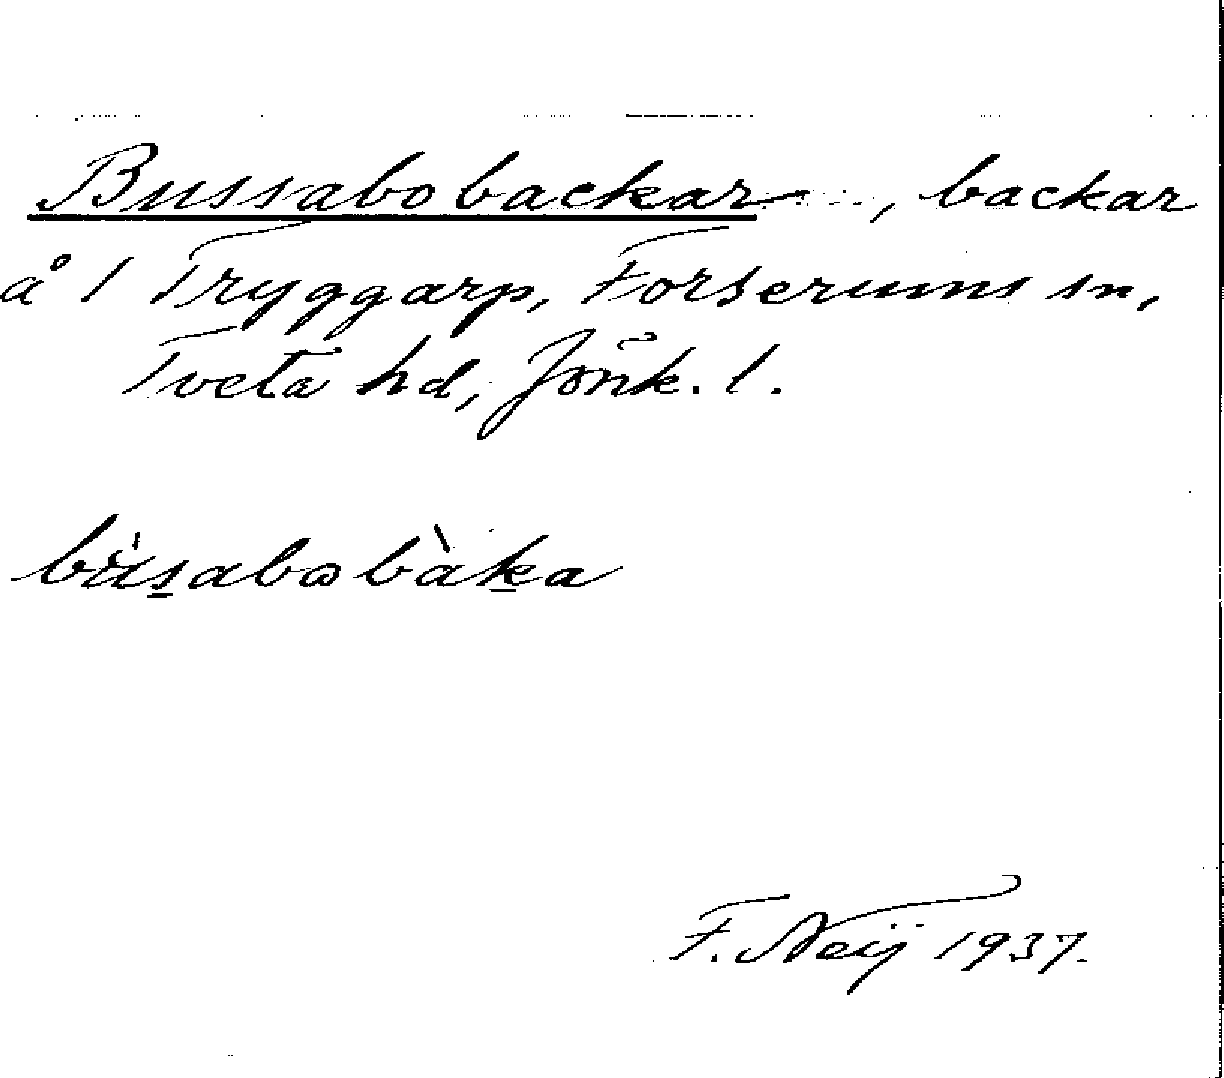 Bussabobackar, backar
å 1 Tryggarp, Forserums sn,
Tveta hd, Jönk. l.
bùsabobàka
F. Neij 1937.